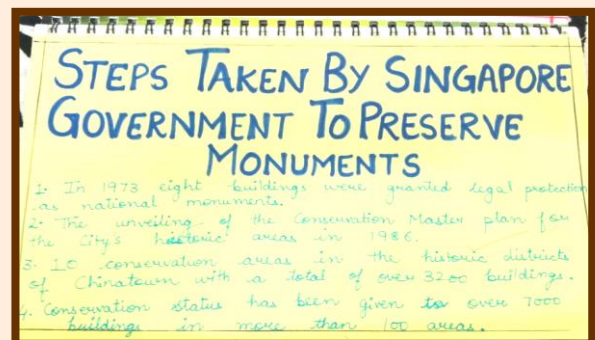 STEPS TAKEN BY SINGAPORE
GOVERNMENT TO PRESERVE
MONUMENTS
1. In 1973 eight buildings were granted legal protection
as national monuments.
2. The unveiling of the Conservation Master plan for
the City's historic areas in 1986.
3. 10 conservation areas in the historic districts
of Chinatown with a total of over 3200 buildings.
4. Conservation status has been given to over 7000
buildings in more than 100 areas.